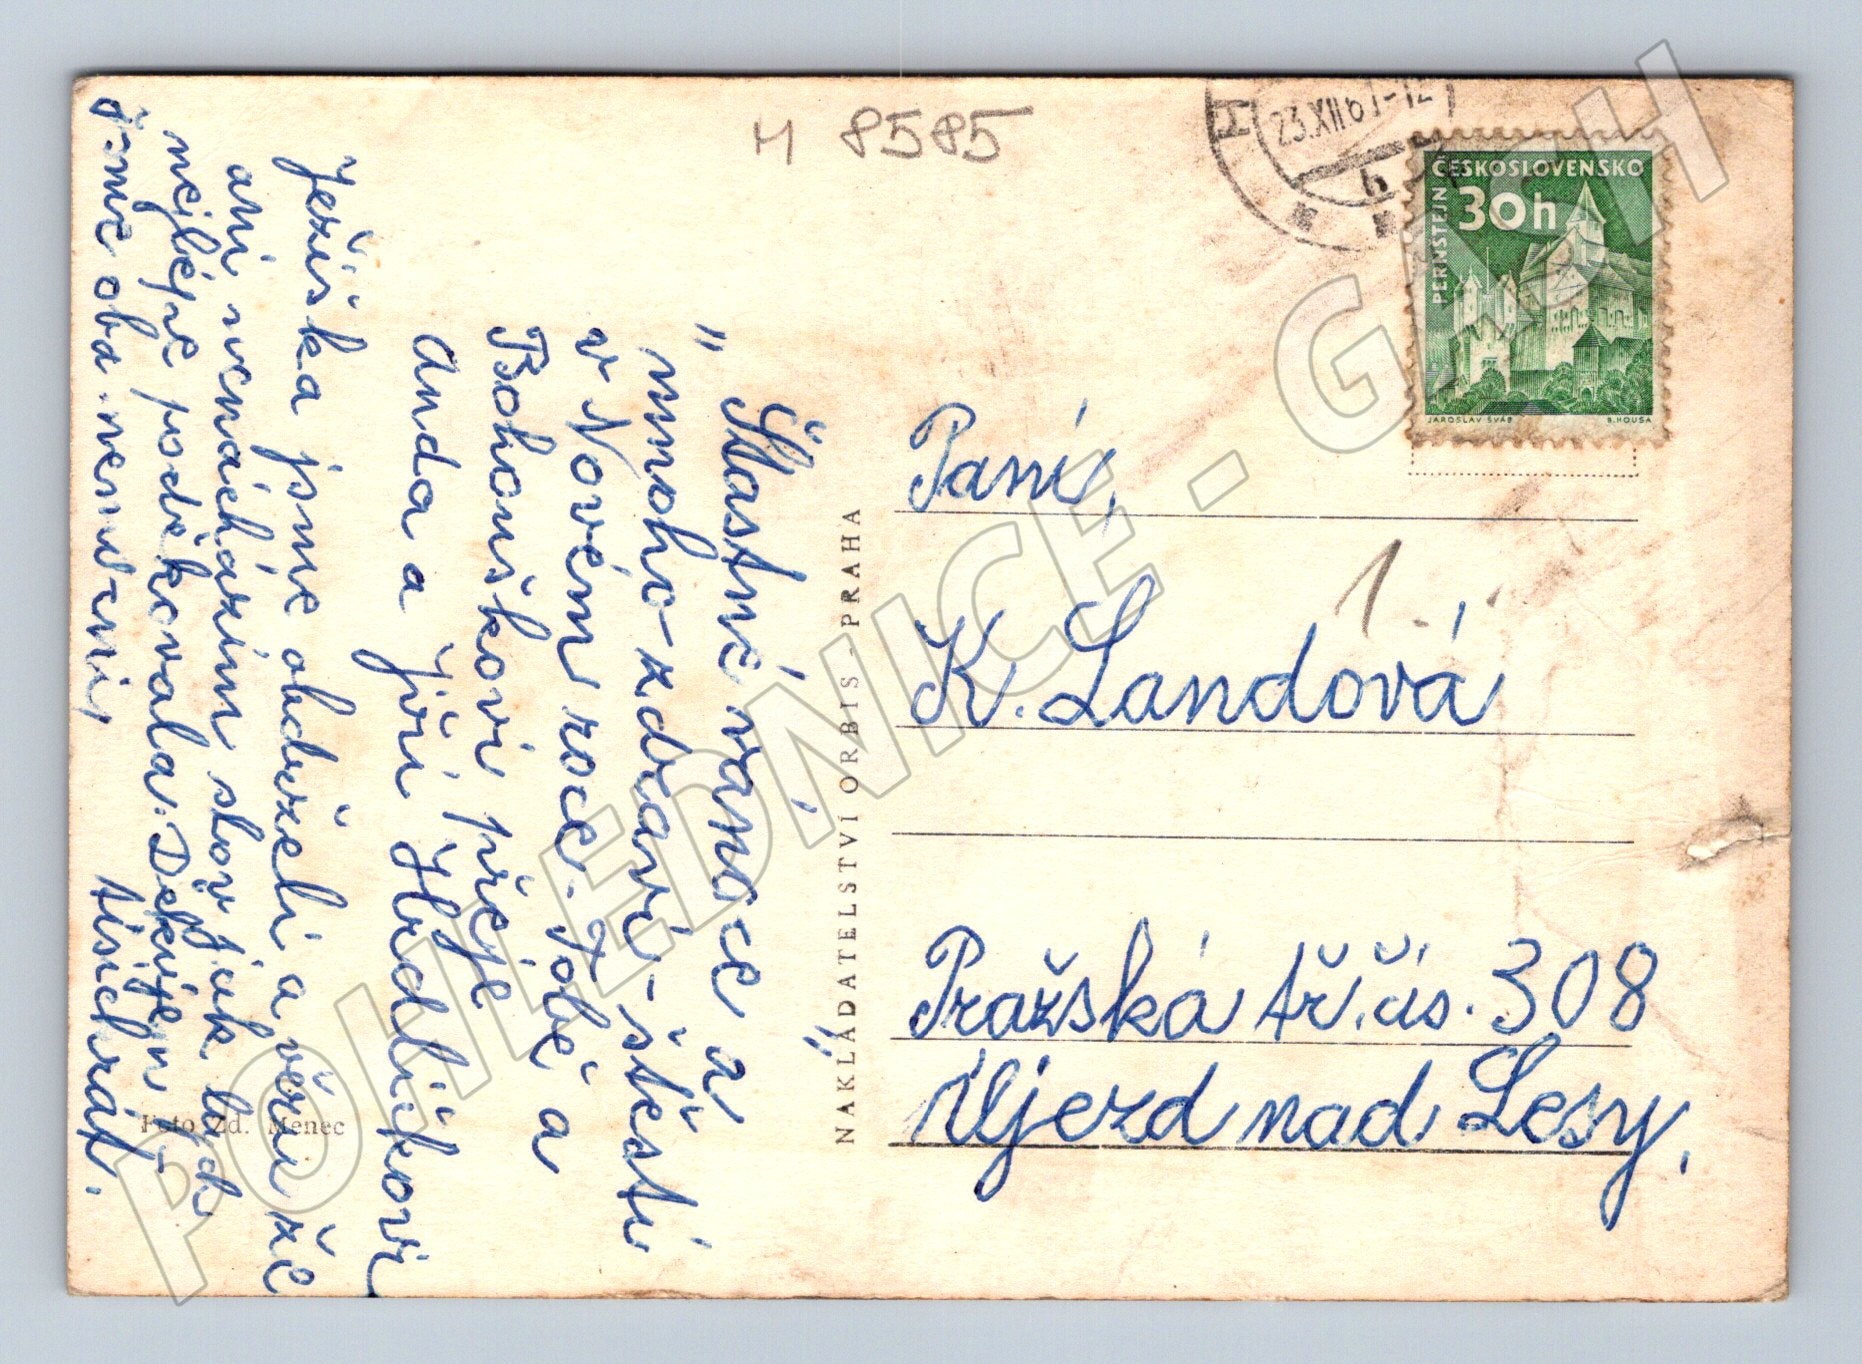 M 8585
23.XII.61-12
h
ČESKOSLOVENSKO
30h
PERNŠTEJN
JAROSLAV ŠVÁB
B. HOUSA
„Šťastné vánoce a
mnoho-zdraví-štěstí
v Novém roce. Tobě a
Bohouškovi přeje
Anda a Jiří Hrdličkovi
Ježíška jsme obdrželi a věru že
ani nenacházím slov jak bych
nejlépe poděkovala. Děkujem-
oba nesmírně,
tisíckrát.
Foto Zd. Menec
NAKLADATELSTVÍ ORBIS - PRAHA
Paní,
1.
K. Landová
Pražská tř. čís. 308
Újezd nad Lesy,
POHLEDNICE - GASH